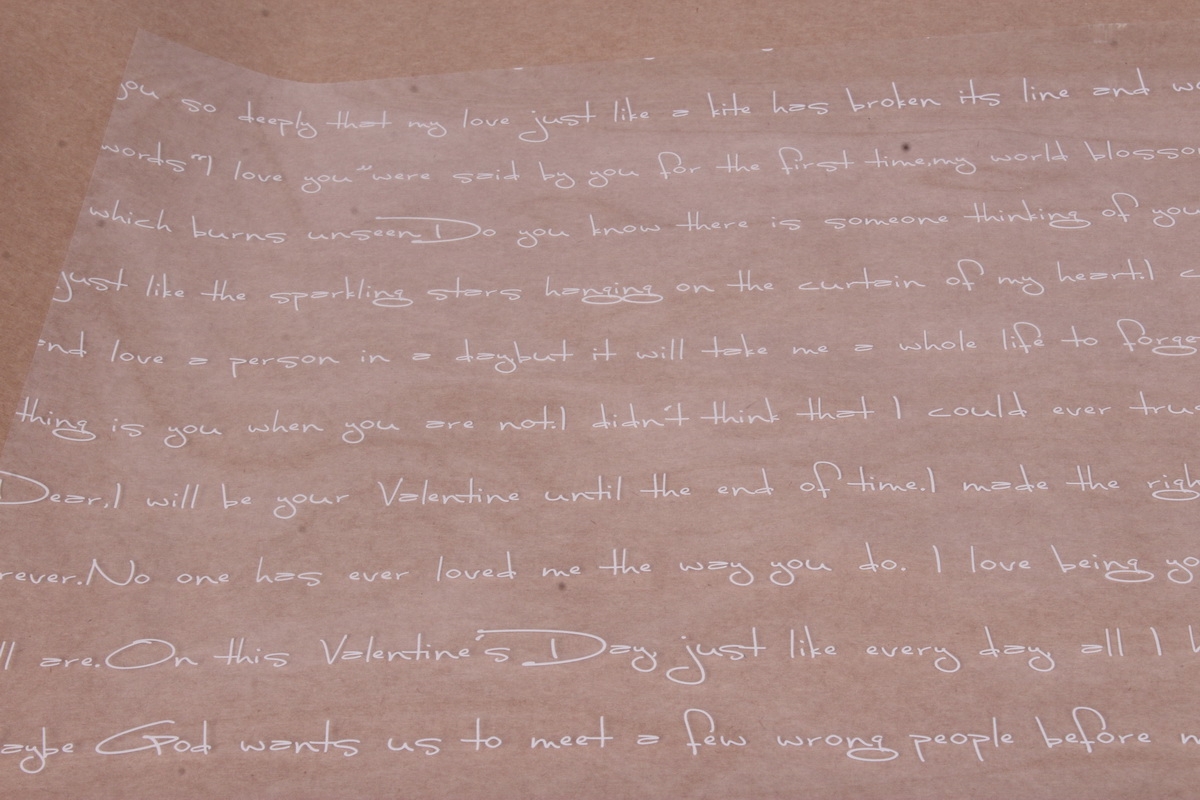 you so deeply that my love just like a kite has broken its line and
words"I love you"were said by you for the first time,my world
which burns unseen.Do you know there is someone thinking of you
just like the sparkling stars hanging on the curtain of my heart.I
and love a person in a daybut it will take me a whole life to
thing is you when you are not.I didn't think that I could ever
Dear,I will be your Valentine until the end of time.I made the
rever.No one has ever loved me the way you do. I love being
ll are.On this Valentine's Day, just like every day all I
aybe God wants us to meet a few wrong people before